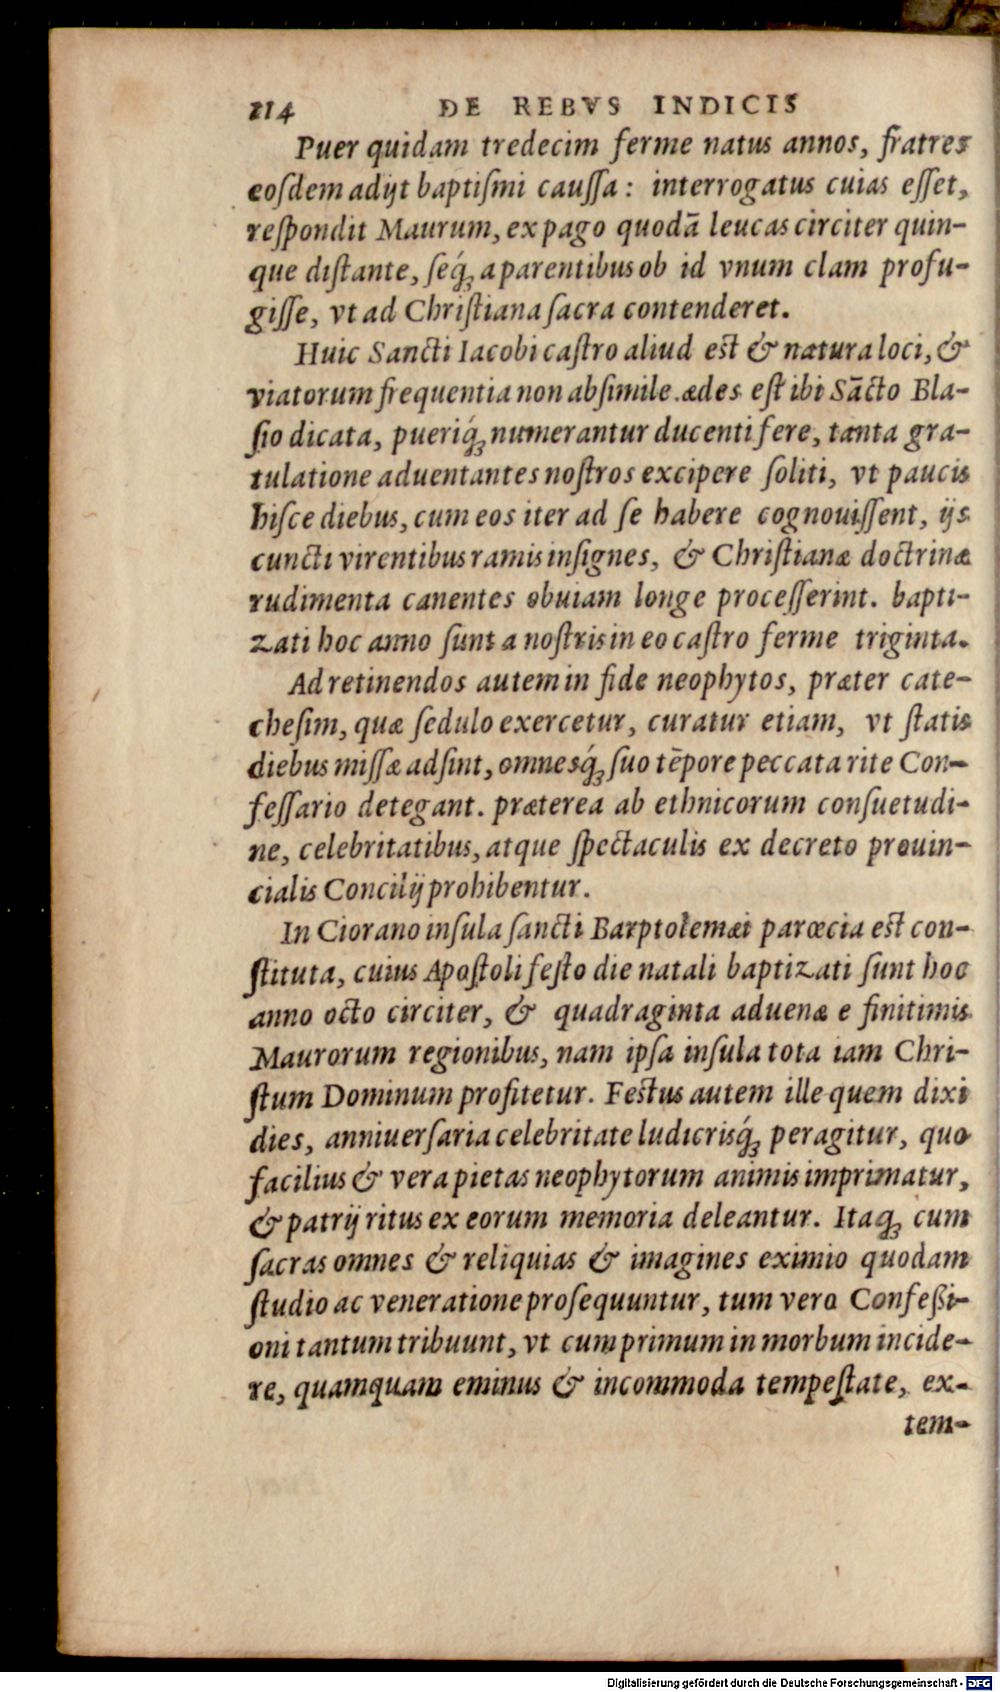 114 DE REBVS INDICIS
Puer quidam tredecim ferme natus annos, fratres
eosdem adijt baptiſmi cauſſa: interrogatus cuias eſſet,
reſpondit Maurum, ex pago quodā leucas circiter quin-
que diſtante, ſeq́; a parentibus ob id vnum clam profu-
giſſe, vt ad Chriſtiana ſacra contenderet.
Huic Sancti Iacobi caſtro aliud est & natura loci, &
viatorum frequentia non abſimile. ædes eſt ibi Sācto Bla-
ſio dicata, pueriq́; numerantur ducenti fere, tanta gra-
tulatione aduentantes noſtros excipere ſoliti, vt paucis
hiſce diebus, cum eos iter ad ſe habere cognouiſſent, ijs
cuncti virentibus ramis inſignes, & Chriſtianæ doctrinæ
rudimenta canentes obuiam longe proceſſerint. bapti-
zati hoc anno ſunt a noſtris in eo caſtro ferme triginta.
Ad retinendos autem in fide neophytos, præter cate-
cheſim, quæ ſedulo exercetur, curatur etiam, vt ſtatis
diebus miſſæ adſint, omnesq́; ſuo tēpore peccata rite Con-
feſſario detegant. præterea ab ethnicorum conſuetudi-
ne, celebritatibus, atque ſpectaculis ex decreto prouin-
cialis Concilij prohibentur.
In Ciorano inſula ſancti Barptolemæi parœcia est con-
ſtituta, cuius Apoſtoli feſto die natali baptizati ſunt hoc
anno octo circiter, & quadraginta aduenæ e finitimis
Maurorum regionibus, nam ipſa inſula tota iam Chri-
ſtum Dominum profitetur. Festus autem ille quem dixi
dies, anniuerſaria celebritate ludicrisq́; peragitur, quo
facilius & vera pietas neophytorum animis imprimatur,
& patrij ritus ex eorum memoria deleantur. Itaq; cum
ſacras omnes & reliquias & imagines eximio quodam
ſtudio ac veneratione proſequuntur, tum vero Confeßi-
oni tantum tribuunt, vt cum primum in morbum incide-
re, quamquam eminus & incommoda tempeſtate, ex-
tem-
Digitalisierung gefördert durch die Deutsche Forschungsgemeinschaft - DFG